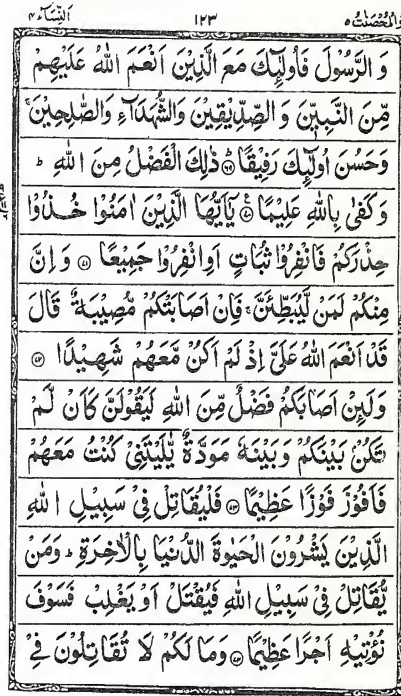 والمحصنت ٥ ١٢٣ النسآء ٤
وَ الرَّسُوْلَ فَاُولٰٓئِكَ مَعَ الَّذِيْنَ اَنْعَمَ اللّٰهُ عَلَيْهِمْ
مِّنَ النَّبِيّٖنَ وَ الصِّدِّيْقِيْنَ وَالشُّهَدَآءِ وَالصّٰلِحِيْنَ ۚ
وَحَسُنَ اُولٰٓئِكَ رَفِيْقًا ۝٦٩ ذٰلِكَ الْفَضْلُ مِنَ اللّٰهِ ؕ
وَ كَفٰى بِاللّٰهِ عَلِيْمًا ۝٧٠ يٰٓاَيُّهَا الَّذِيْنَ اٰمَنُوْا خُذُوْا
حِذْرَكُمْ فَانْفِرُوْا ثُبَاتٍ اَوِانْفِرُوْا جَمِيْعًا ۝٧١ وَ اِنَّ
مِنْكُمْ لَمَنْ لَّيُبَطِّئَنَّ ۚ فَاِنْ اَصَابَتْكُمْ مُّصِيْبَةٌ قَالَ
قَدْ اَنْعَمَ اللّٰهُ عَلَيَّ اِذْ لَمْ اَكُنْ مَّعَهُمْ شَهِيْدًا ۝٧٢
وَلَئِنْ اَصَابَكُمْ فَضْلٌ مِّنَ اللّٰهِ لَيَقُوْلَنَّ كَاَنْ لَّمْ
تَكُنْۢ بَيْنَكُمْ وَبَيْنَهٗ مَوَدَّةٌ يّٰلَيْتَنِيْ كُنْتُ مَعَهُمْ
فَاَفُوْزَ فَوْزًا عَظِيْمًا ۝٧٣ فَلْيُقَاتِلْ فِيْ سَبِيْلِ اللّٰهِ
الَّذِيْنَ يَشْرُوْنَ الْحَيٰوةَ الدُّنْيَا بِالْاٰخِرَةِ ؕ وَمَنْ
يُّقَاتِلْ فِيْ سَبِيْلِ اللّٰهِ فَيُقْتَلْ اَوْ يَغْلِبْ فَسَوْفَ
نُؤْتِيْهِ اَجْرًا عَظِيْمًا ۝٧٤ وَمَا لَكُمْ لَا تُقَاتِلُوْنَ فِيْ